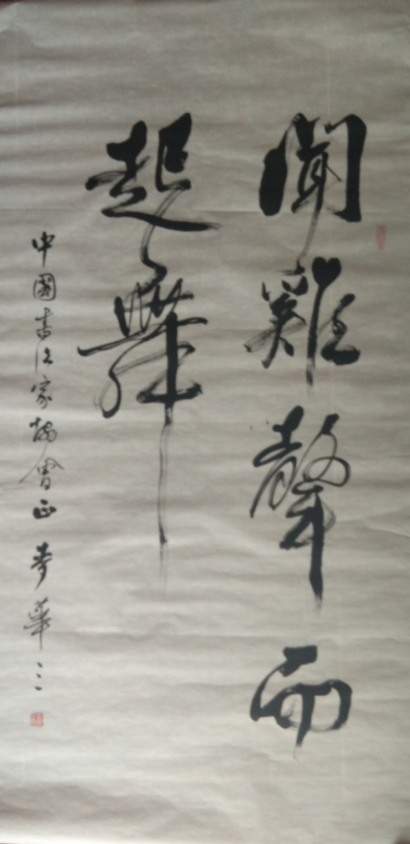 聞雞聲而
起舞
中國書法家協會正書華三